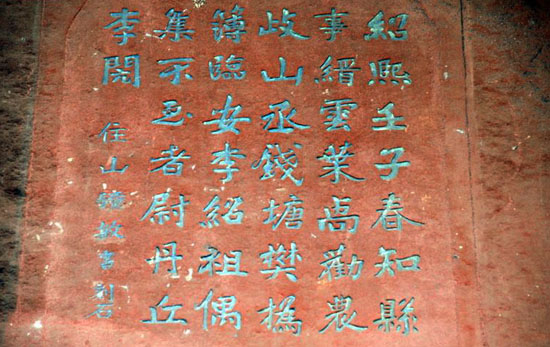 紹熙壬子春知縣
事縉雲葉卨勸農
歧山丞錢塘樊
簿臨安李紹祖偶
集不至者尉丹丘
李
住山 敏書刻石